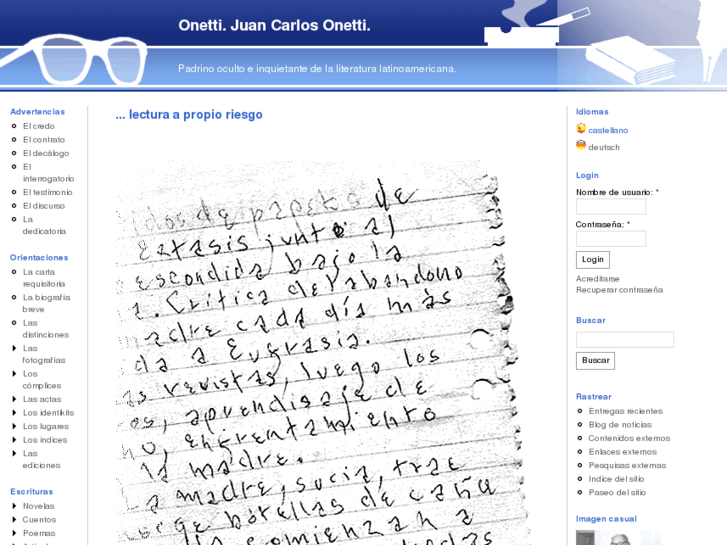 Onetti. Juan Carlos Onetti.
Padrino oculto e inquietante de la literatura latinoamericana.
Advertencias
El credo
El contrato
El decálogo
El
interrogatorio
El testimonio
El discurso
La
dedicatoria
Orientaciones
La carta
requisitoria
La biografía
breve
Las
distinciones
Las
fotografías
Los
cómplices
Las actas
Los identikits
Los lugares
Los índices
Las
ediciones
Escrituras
Novelas
Cuentos
Poemas
... lectura a propio riesgo
de pronto de
extasis junto al
escondida bajo la
. Critica del abandono
madre cada día más
da a Eugrasia.
revistas, luego los
aprendisaje de
enfrentamiento
la madre.
La madre, sucia, trae
botellas de caña
comienzan a
Idiomas
castellano
deutsch
Login
Nombre de usuario: *
Contraseña: *
Login
Acreditarse
Recuperar contraseña
Buscar
Buscar
Rastrear
Entregas recientes
Blog de noticias
Contenidos externos
Enlaces externos
Pesquisas externas
Indice del sitio
Paseo del sitio
Imagen casual